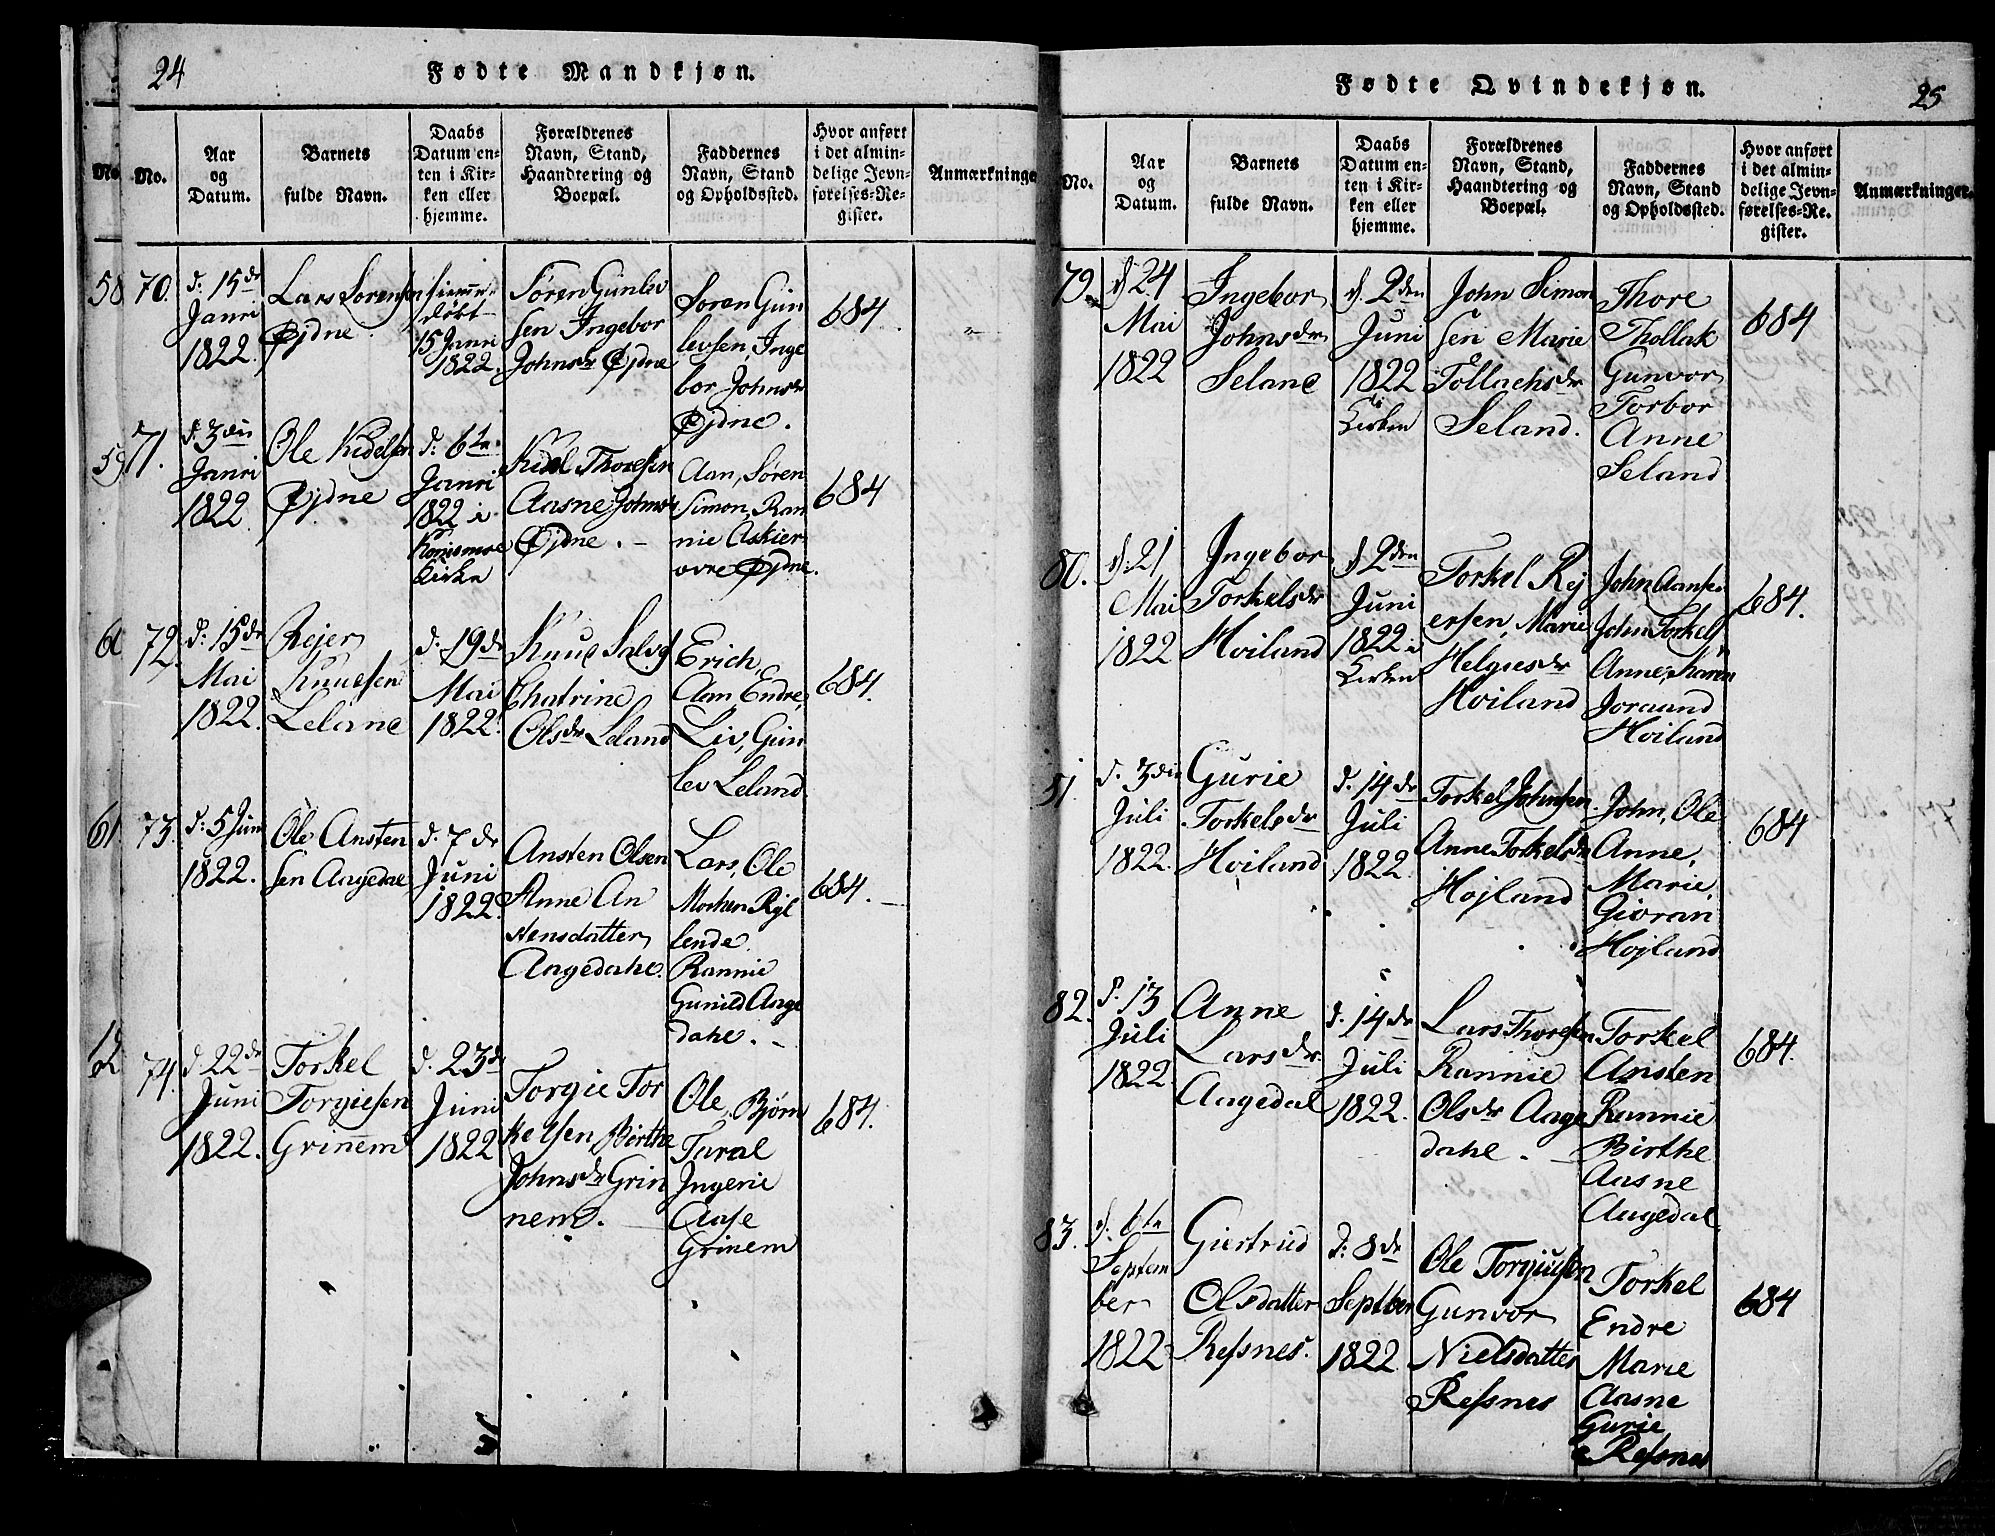 24
Fødte Mandkjøn.
No.
No.
Aar
og
Datum.
Barnets
fulde Navn.
Daabs
Datum en-
ten i Kir-
ken eller
hjemme.
Forældrenes
Navn, Stand,
Haandtering og
Boepæl.
Faddernes
Navn, Stand
og Opholdssted.
Hvor anført
i det almin-
delige Jevn-
førelses-Re-
gister.
Anmærkninger
58
70.
d: 15de
Janri
1822.
Lars Sørensen
Øjdne
døbt
15 Janri
1822.
Søren Gunlev
sen Ingebor
Johnsdr Øjdne
Søren Gun
levsen, Inge
bor Johnsdr
Øjdne.
684.
59
71.
d: 3die
Janri
1822
Ole Kidelsen
Øjdne
d: 6te
Janri
1822 i
Konismoe
Kirke
Kidel Thoresen
Aasne Johnsdr
Øjdne. -
Aan, Søren
Simon, Ran
nie Askier
ovre Øjdne.
684
60
72.
d: 15de
Mai
1822.
Rejer
Knudsen
Leland
d. 19de
Mai
1822.
Knud Salvg
Chatrine
Olsdr Leland
Erich,
Aan Endre,
Liv, Gun
lev Leland.
684.
61.
73.
d: 5 Juni
1822.
Ole Ansten
sen Aagedal
d. 7de
Juni
1822.
Ansten Olsen
Anne An
stensdatter
Aagedahl.
Lars, Ole
Morten Ryl
lende
Rannie
Gunild Aage
dahl. -
684. -
62
74.
d. 22de
Juni
1822.
Torkel
Torgiesen
Grinem
d. 23de
Juni
1822
Torgie Tor
kelsen, Birthe
Johnsdr Grin
nem.
Ole, Bjørn
Taral
Ingerie
Aase
Grinem
684.
25
Fødte Qvindekjøn.
No.
Aar
og
Datum.
Barnets
fulde Navn.
Daabs
Datum en-
ten i Kir-
ken eller
hjemme.
Forældrenes
Navn, Stand,
Haandtering og
Boepæl.
Faddernes
Navn, Stand
og Opholdssted.
Hvor anført
i det almin-
delige Jevn-
førelses-Re-
gister.
Anmærkninger.
79.
d. 24
Mai
1822
Ingebor
Johnsdr
Seland
d. 2den
Juni
1822
i
Kirken
John Simon
sen Marie
Tollachsdr
Seland.
Thore
Thollak
Gunvor
Torbor
Anne
Seland
684
80.
d. 21
Mai
1822
Ingebor
Torkelsdr
Høiland
d. 2den
Juni
1822 i
Kirken
Torkel Rej
ersen, Marie
Helgiesdr
Høiland
John Aansen
John Torkels
Anne, Karen
Joraand
Høiland
684.
51.
d. 3die
Juli
1822.
Gurie
Torkelsdr
Høiland
d. 14de
Juli
1822.
Torkel Johnsen
Anne Torkelsdr
Højland
John, Ole
Anne,
Marie,
Giøran
Højland
684
82.
d. 13
Juli
1822.
Anne
Larsdr
Aagedal
d. 14de
Juli
1822.
Lars Thoresen
Rannie
Olsdr Aage
dahl. -
Torkel
Ansten
Rannie
Birthe
Aasne
Aagedal
684.
83.
d. 6te
Septem
ber
1822
Giertrud
Olsdatter
Refsnes.
d: 8de
Septber
1822
Ole Torgiusen
Gunvor
Nielsdatter
Refsnes
Torkel
Endre
Marie
Aasne
Gurie
Refsnes
684